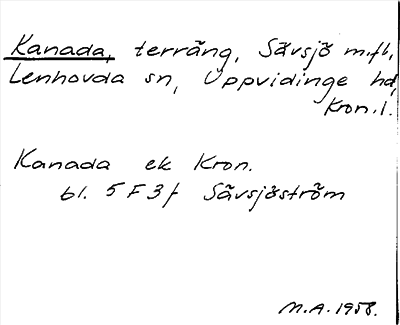 Kanada, terräng, Sävsjö m.fl,
Lenhovda sn, Uppvidinge hd,
Kron.l.
Kanada ek Kron.
bl. 5 F 3 f Sävsjöström
M.A. 1958.